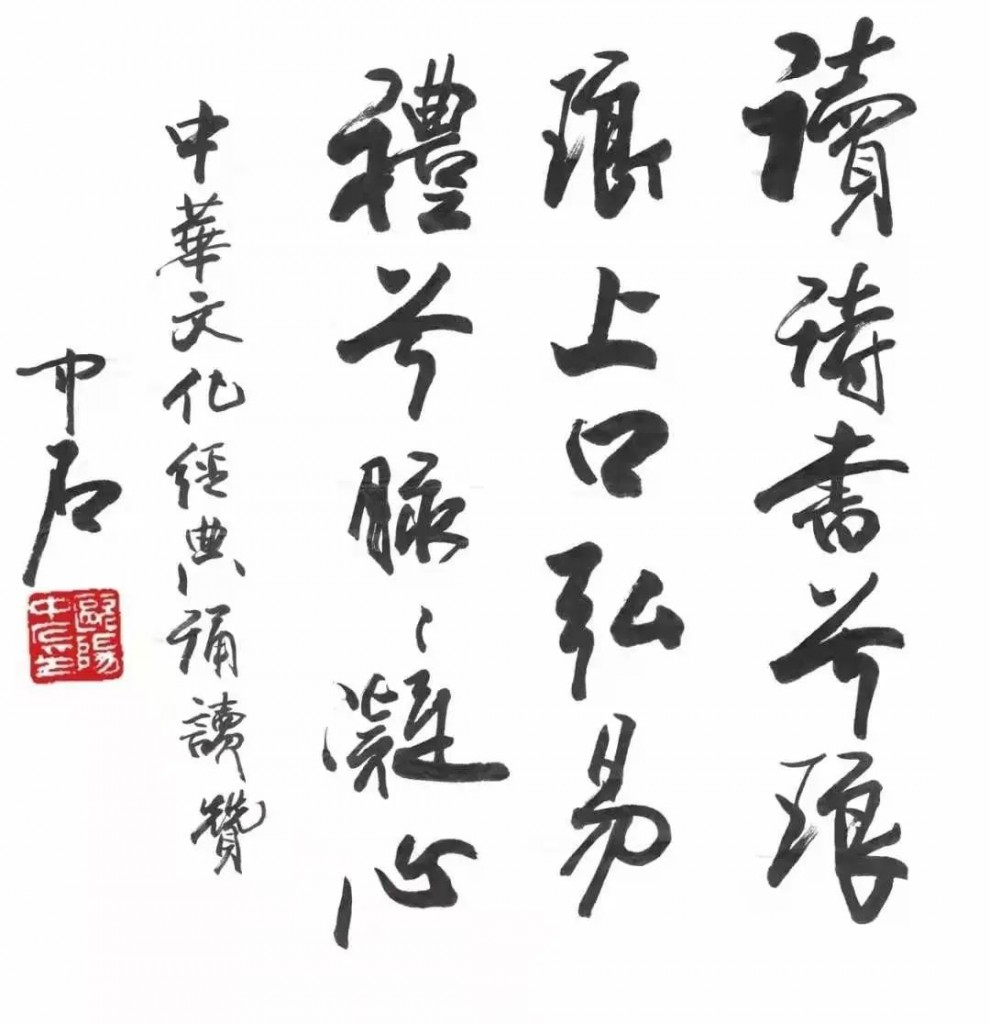 讀詩書兮琅
琅上口弘易
禮兮脈〻凝心
中華文化經典誦讀贊
中石
歐陽
中石